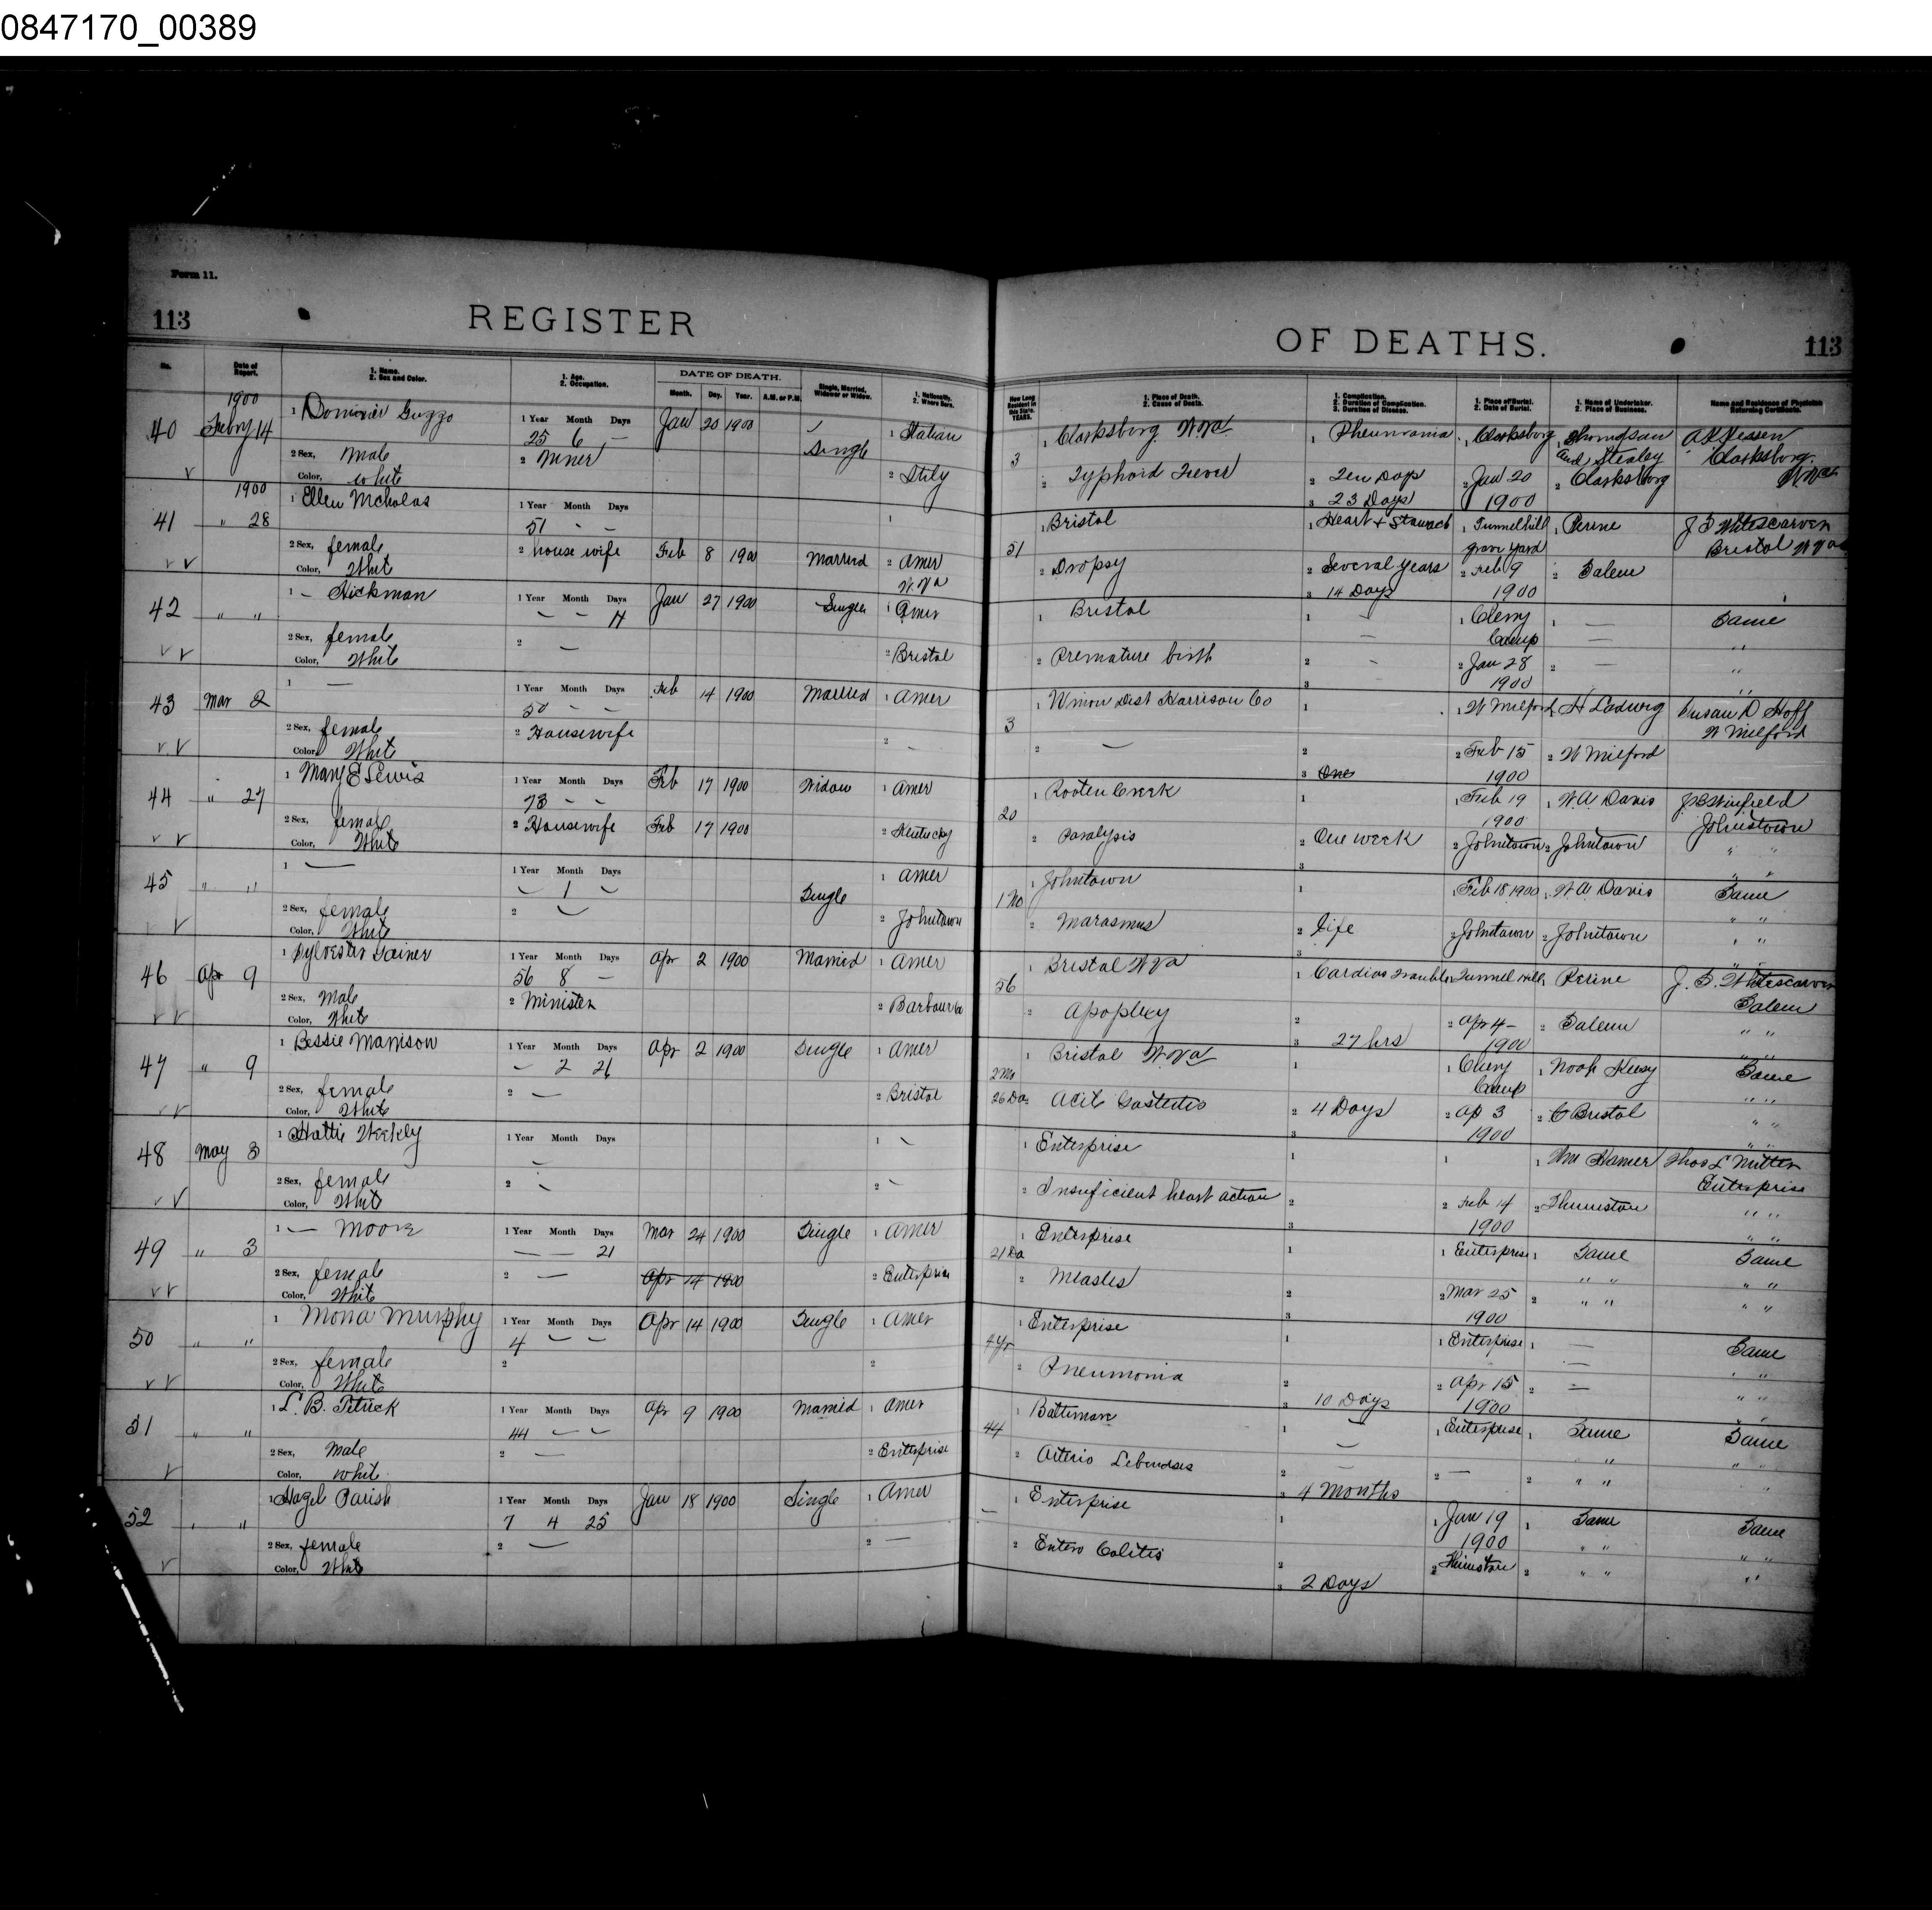 0847170_00389
Form 11.
113 REGISTER OF DEATHS. 113
No. Date of Report. 1. Name. 2. Sex and Color. 1. Age. 2. Occupation. DATE OF DEATH. Month. Day. Year. A.M. or P.M. Single, Married, Widower or Widow. 1. Nationality. 2. Where Born. How Long Resident in this State. YEARS. 1. Place of Death. 2. Cause of Death. 1. Complication. 2. Duration of Complication. 3. Duration of Disease. 1. Place of Burial. 2. Date of Burial. 1. Name of Undertaker. 2. Place of Business. Name and Residence of Physician Returning Certificate.
1900
40 Feb'y 14 1 Guzzo 1 Year Month Days Jan 20 1900 1 Italian 3 1 Clarksburg W.Va. 1 Pheumonia 1 Clarksburg 1 Thompson
25 6 — Single and Stealey Clarksburg W Va
2 Sex, Male 2 Miner 2 Itily 2 Typhoid Fever 2 Ten Days 2 Jan 20 2 Clarksburg
Color, White 3 23 Days 1900
1900
41 " 28 1 Ellen Nicholas 1 Year Month Days 1 51 1 Bristol 1 Heart + Stomach 1 Tunnelhill 1 Perine J F Whitescarver
51 - - grave yard Bristol W Va
2 Sex, female 2 house wife Feb 8 1900 Married 2 Amer 2 Dropsy 2 Several years 2 Feb 9 2 Salem
Color, Whit W.Va 3 14 Days 1900
42 " " 1 — Hickman 1 Year Month Days Jan 27 1900 Single 1 Amer 1 Bristol 1 — 1 Cherry 1 — Same
— — Camp
2 Sex, female 2 — 2 Bristol 2 Premature birth 2 - 2 Jan 28 2 — " "
Color, White 3 1900 " "
43 Mar 2 1 — 1 Year Month Days Feb 14 1900 Married 1 Amer 3 1 Union Dist Harrison Co 1 1 W Milford 1 H Ladwig Susan D Hoff
50 - - W Milford
2 Sex, female 2 Housewife 2 - 2 — 2 2 Feb 15 2 W Milford
Color, Whit 3 One 1900
44 " 27 1 Mary E Lewis 1 Year Month Days Feb 17 1900 Widow 1 Amer 20 1 Rooten Creek 1 1 Feb 19 1 W.A. Davis
73 - - 1900 Johnstown
2 Sex, female 2 Housewife Feb 17 1900 2 Kentucky 2 Paralysis 2 One week 2 Johntown 2 Johntown " "
Color, White 3 " "
45 " " 1 — 1 Year Month Days Single 1 Amer 1 Mo 1 Johntown 1 1 Feb 18 1900 1 W A Davis Same
— 1 — " "
2 Sex, female 2 — 2 Johntown 2 Marasmus 2 Life 2 Johntown 2 Johntown " "
Color, White 3 " "
46 Apr 9 1 Sylvester Gainer 1 Year Month Days Apr 2 1900 Married 1 Amer 56 1 Bristol W Va 1 Cardiac Trouble 1 Tunnel Hill 1 Perine J. F. Whitescarver
56 8 — Salem
2 Sex, Male 2 Minister 2 Barbour Co 2 Apoplexy 2 2 Apr 4- 2 Salem " "
Color, White 3 27 hrs 1900 " "
47 " 9 1 Bessie Marrison 1 Year Month Days Apr 2 1900 Single 1 Amer 2 Mo 1 Bristol W.Va 1 1 Cherry 1 Noah Same
— 2 26 Camp " "
2 Sex, female 2 — 2 Bristol 26 Da 2 Acit Gastritis 2 4 Days 2 Ap 3 2 Bristol " "
Color, White 3 1900 " "
48 May 3 1 Hattie Weekly 1 Year Month Days 1 - 1 Enterprise 1 1 1 Wm Hamer Thos L
— Enterprise
2 Sex, female 2 - 2 - 2 Insuficient heart action 2 2 Feb 14 2 " "
Color, White 3 1900 " "
49 " 3 1 — Moore 1 Year Month Days Mar 24 1900 Single 1 Amer 21 Da 1 Enterprise 1 1 Enterprise 1 Same Same
— — 21 " " " "
2 Sex, female 2 — Apr 14 1900 2 Enterprise 2 Measles 2 2 Mar 25 2 " " " "
Color, White 3 1900
50 " " 1 Mona Murphy 1 Year Month Days Apr 14 1900 Single 1 Amer 4 yr 1 Enterprise 1 1 Enterprise 1 — Same
4 — — — " "
2 Sex, female 2 2 2 Pneumonia 2 2 Apr 15 2 — " "
Color, White 3 10 Days 1900 " "
51 " " 1 L. B. Petrick 1 Year Month Days Apr 9 1900 Married 1 Amer 44 1 Baltimore 1 — 1 Enterprise 1 Same Same
44 — — — " " " "
2 Sex, Male 2 — 2 Enterprise 2 Arterio 2 — 2 — 2 " " "
Color, White 3 4 Months
52 " " 1 Hazel Parish 1 Year Month Days Jan 18 1900 Single 1 Amer — 1 Enterprise 1 1 Jan 19 1 Same Same
7 4 25 1900 " " " "
2 Sex, female 2 — 2 — 2 Entero Colitis 2 2 2 " " " "
Color, White 3 2 Days